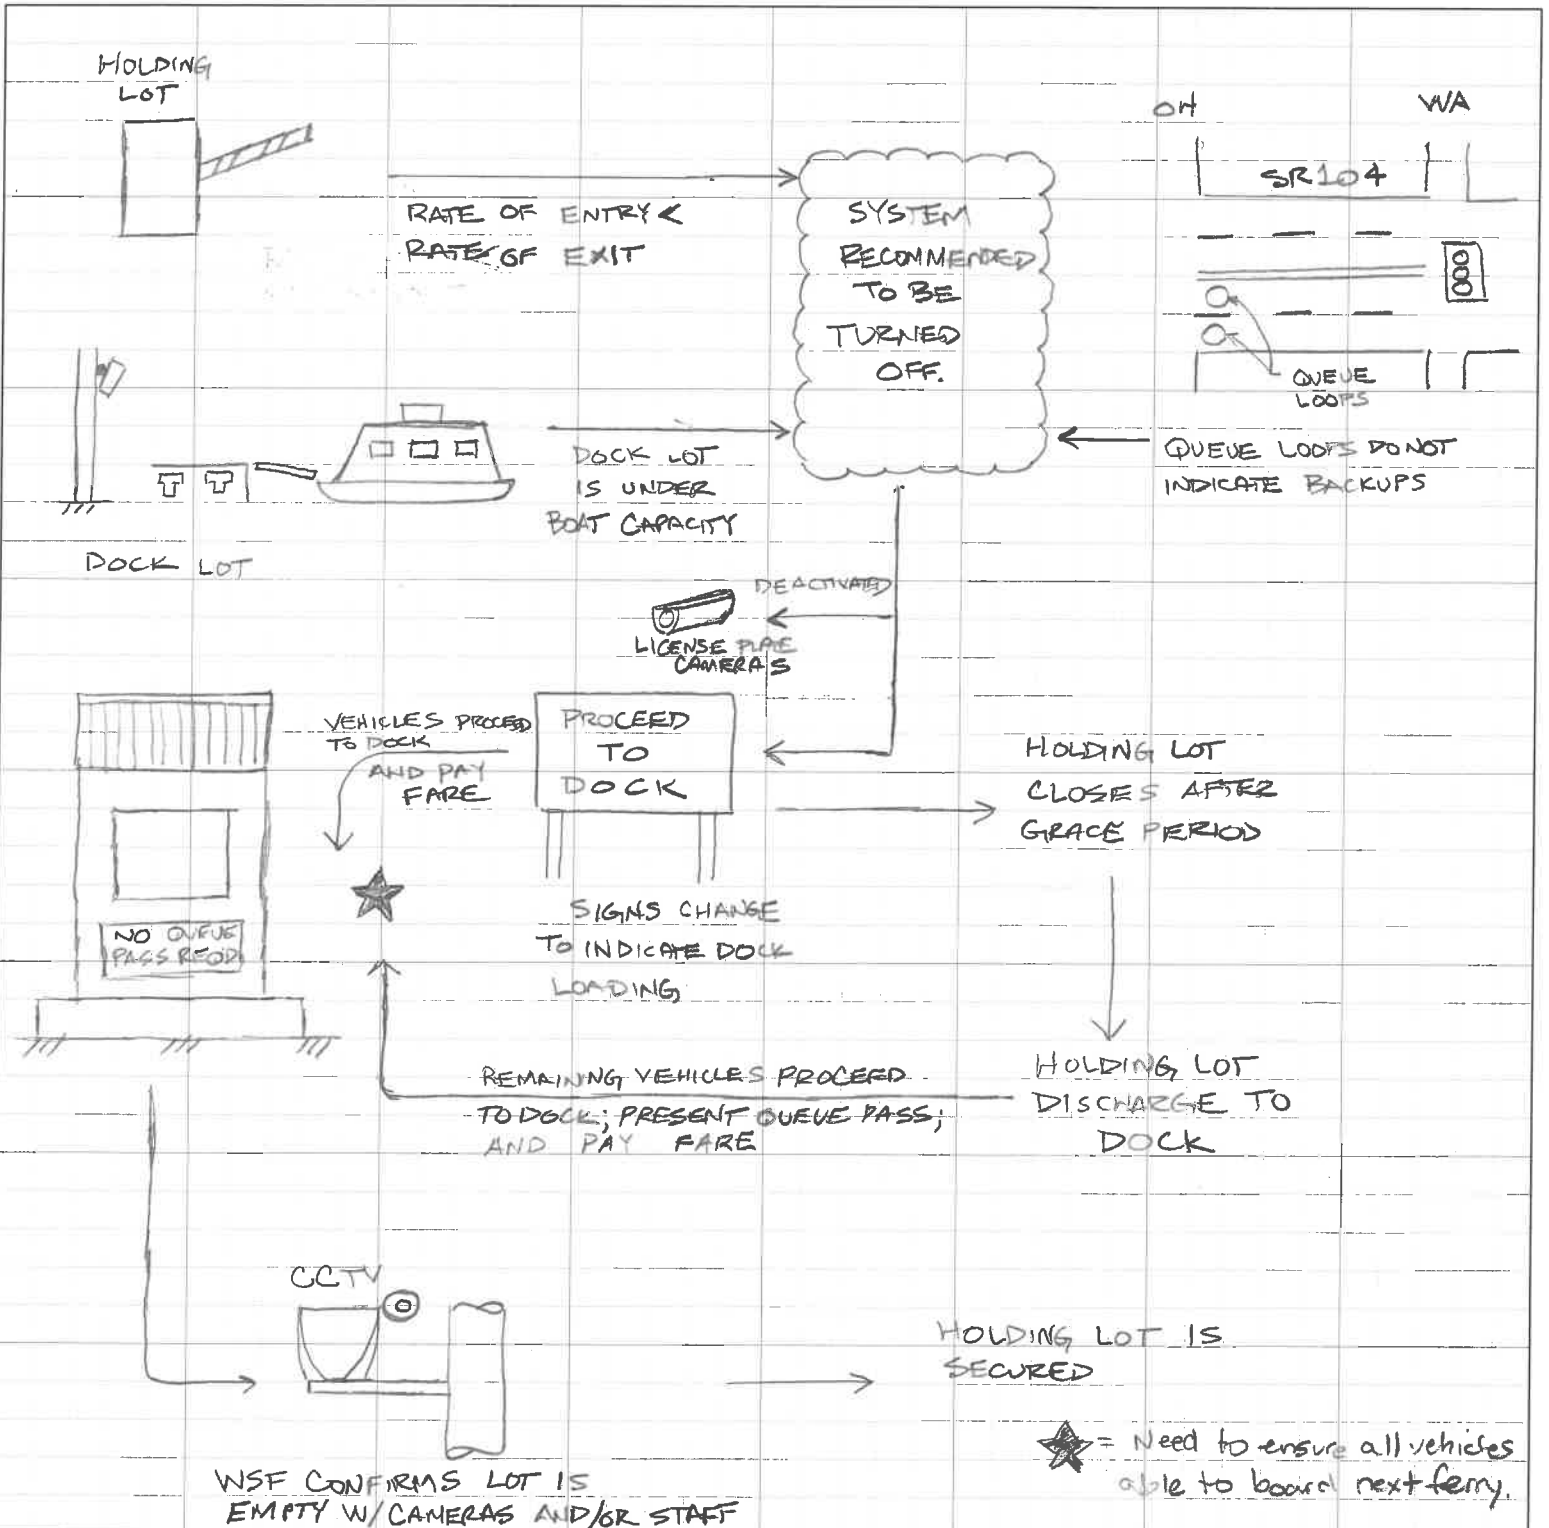 HOLDING
LOT
OH
WA
SR104
RATE OF ENTRY <
RATE OF EXIT
SYSTEM
RECOMMENDED
TO BE
TURNED
OFF.
QUEUE
LOOPS
DOCK LOT
IS UNDER
BOAT CAPACITY
QUEUE LOOPS DO NOT
INDICATE BACKUPS
DOCK LOT
DEACTIVATED
LICENSE PLATE
CAMERAS
VEHICLES PROCEED
TO DOCK
AND PAY
FARE
PROCEED
TO
DOCK
HOLDING LOT
CLOSES AFTER
GRACE PERIOD
NO QUEUE
PASS REQD
SIGNS CHANGE
TO INDICATE DOCK
LOADING
REMAINING VEHICLES PROCEED
TO DOCK; PRESENT QUEUE PASS;
AND PAY FARE
HOLDING LOT
DISCHARGE TO
DOCK
CCTV
HOLDING LOT IS
SECURED
WSF CONFIRMS LOT IS
EMPTY W/ CAMERAS AND/OR STAFF
★ = Need to ensure all vehicles
able to board next ferry.